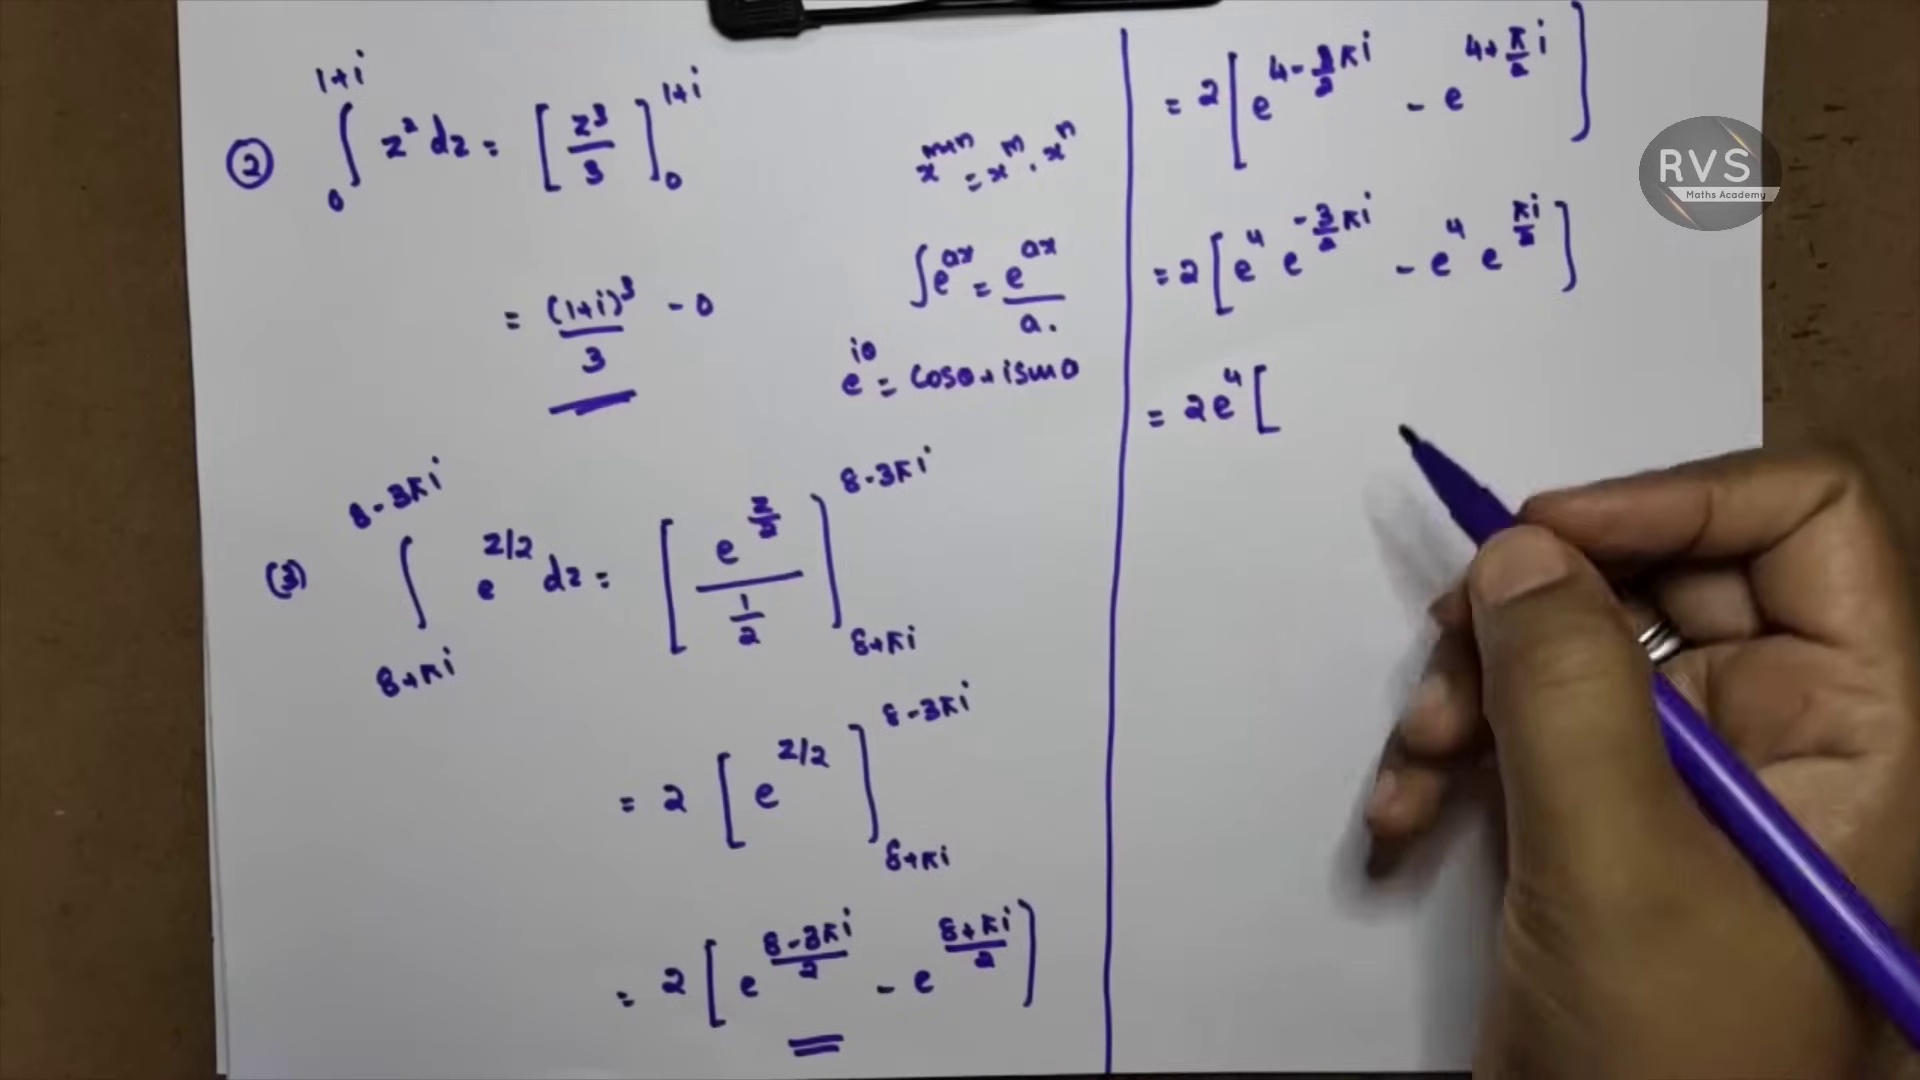 ② ∫₀^{1+i} z² dz = [z³/3]₀^{1+i}
= (1+i)³/3 - 0
x^{m+n} = x^m . x^n
∫e^{ax} = e^{ax}/a.
e^{iθ} = cosθ + i sinθ
(3) ∫_{8+πi}^{8-3πi} e^{z/2} dz = [e^{z/2}/(1/2)]_{8+πi}^{8-3πi}
= 2 [e^{z/2}]_{8+πi}^{8-3πi}
= 2 [e^{(8-3πi)/2} - e^{(8+πi)/2}]
= 2 [e^{4-(3/2)πi} - e^{4+(π/2)i}]
= 2 [e⁴ e^{-(3/2)πi} - e⁴ e^{πi/2}]
= 2e⁴ [
RVS
Maths Academy